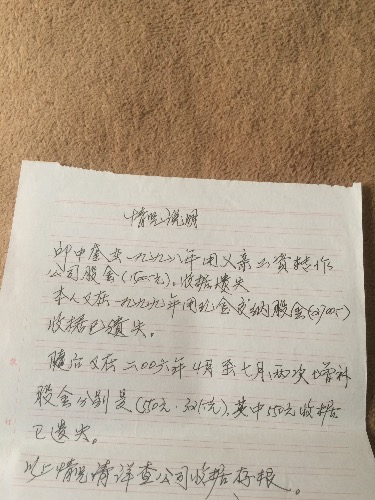 情况说明
邱中奎女一九九八年用父亲工资转作
公司股金(1500元)。收据遗失
本人又在一九九九年用现金交纳股金(2700元)
收据已遗失。
随后又在二00六年4月至七月,两次增补
股金分别是(550元·3215元),其中550元收据
已遗失。
以上情况请详查公司收据存根。